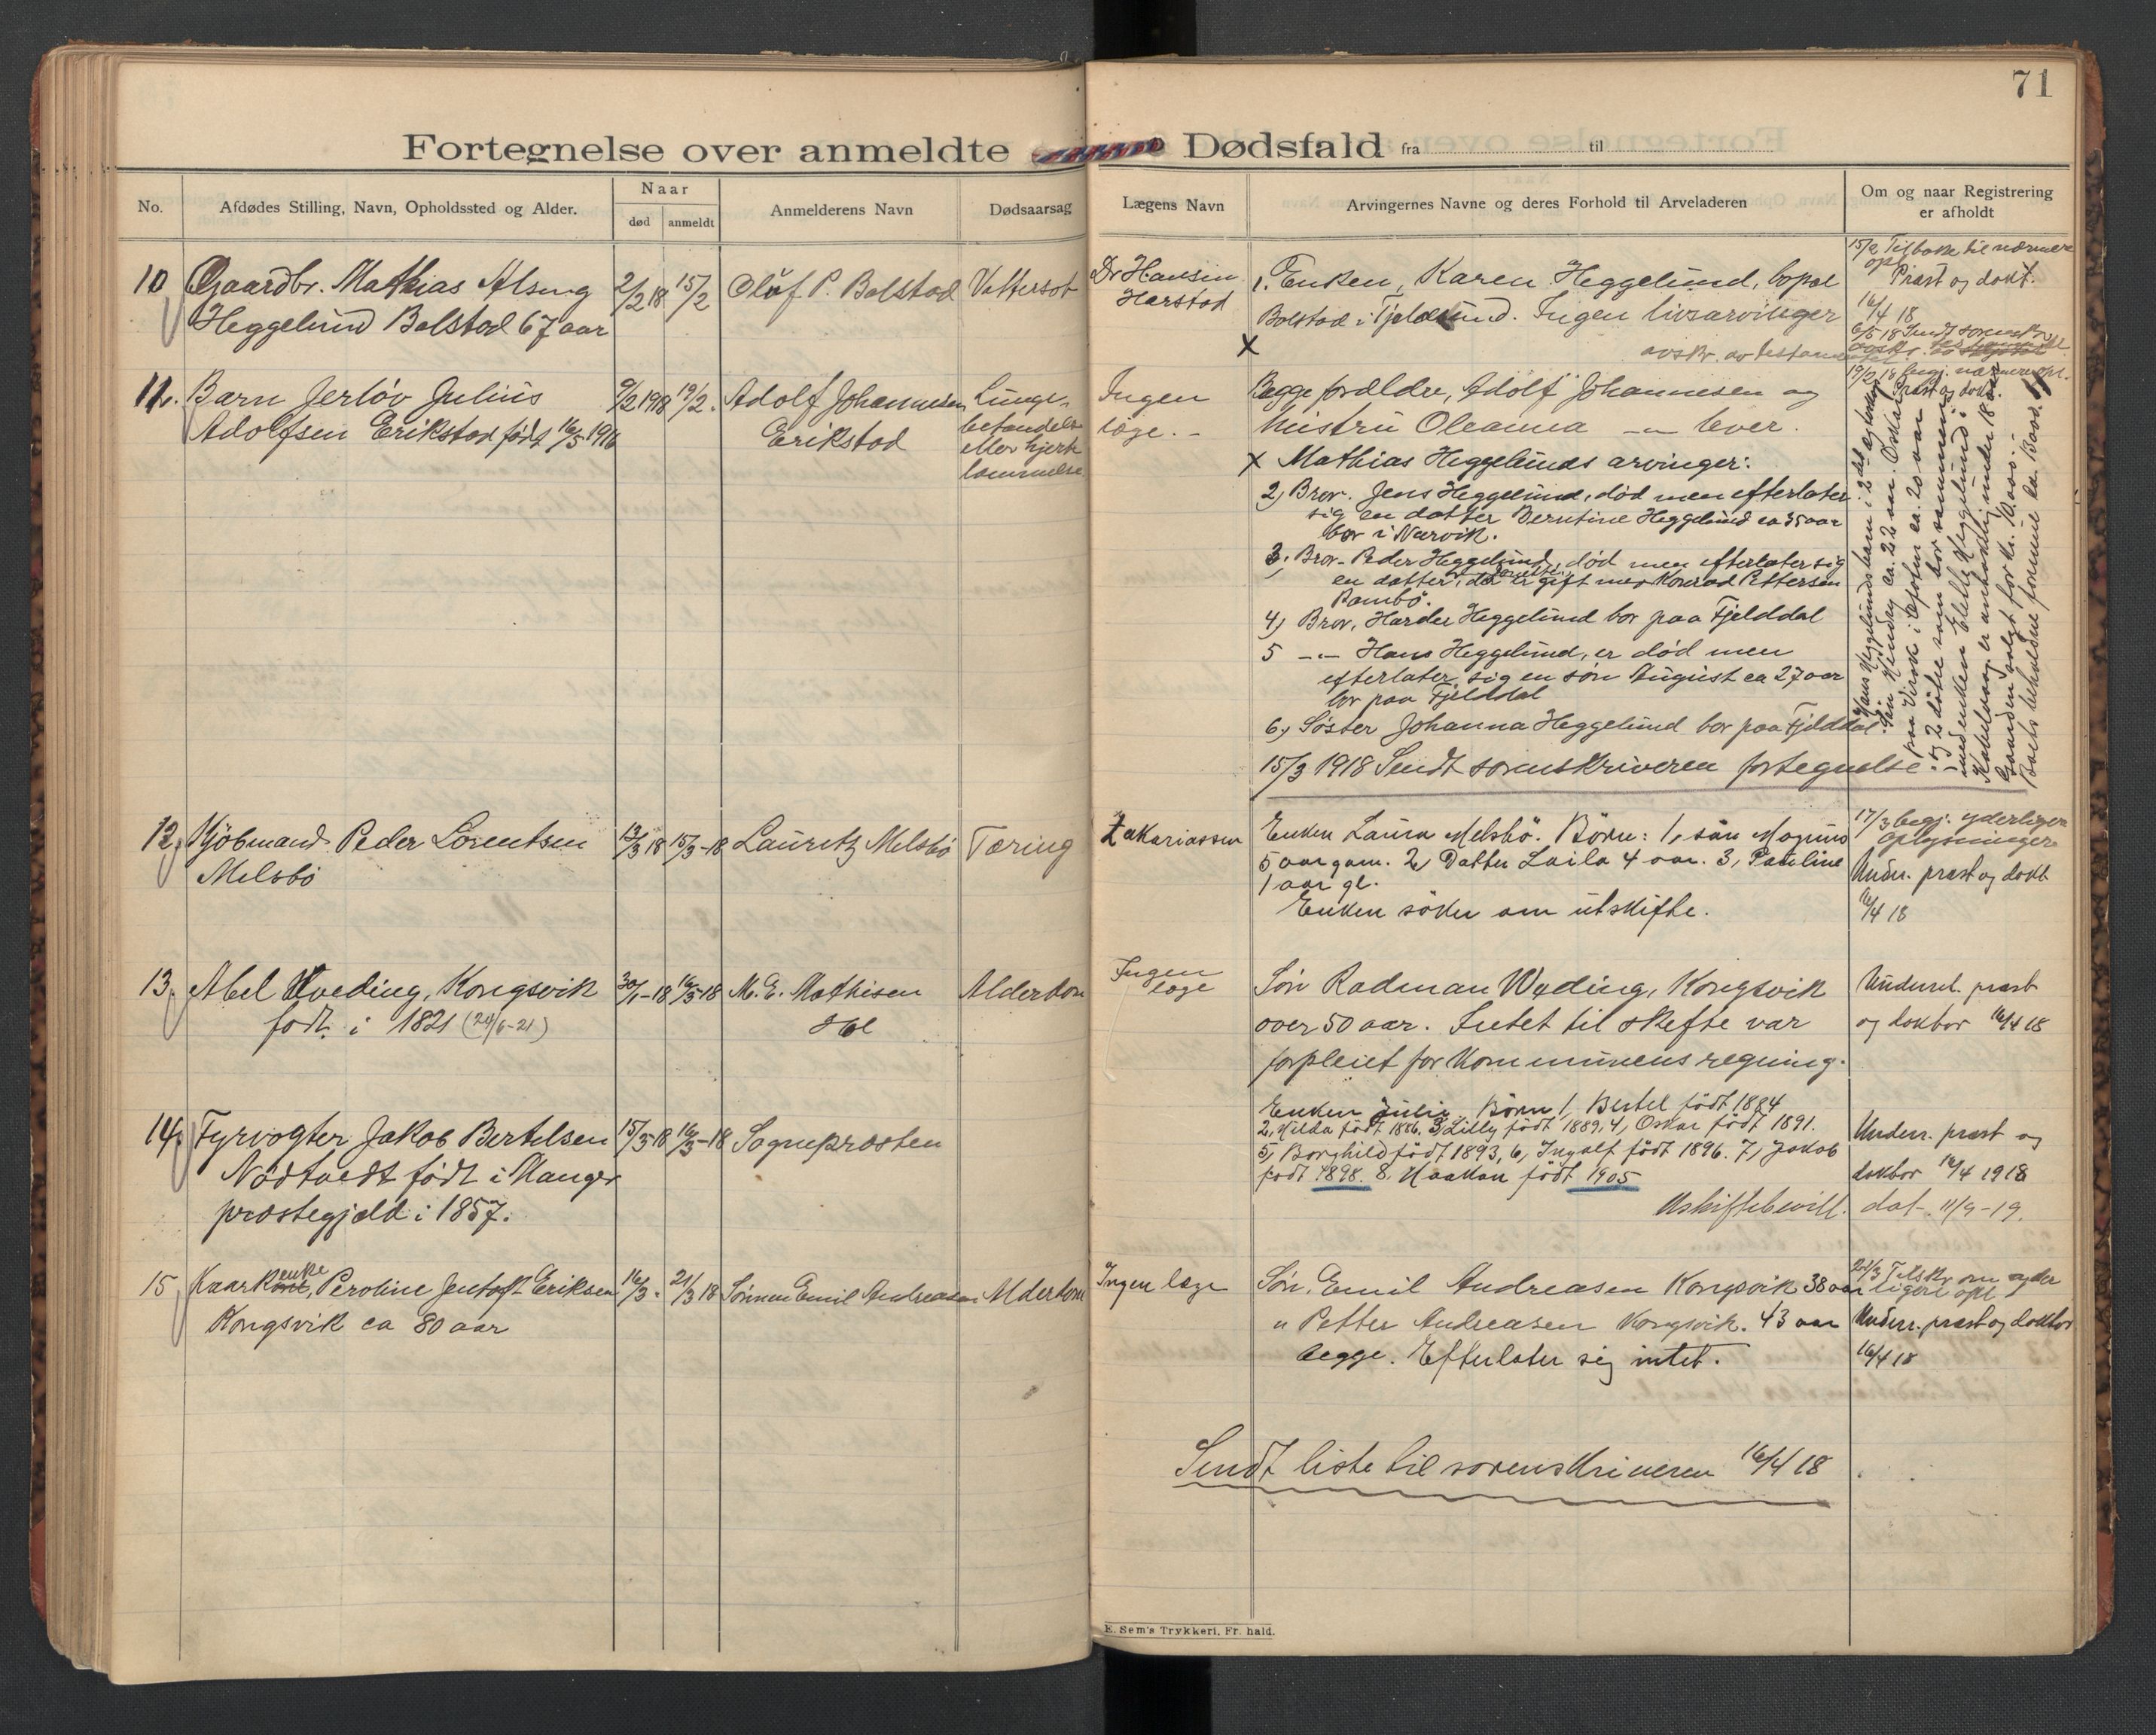 71
Fortegnelse over anmeldte Dødsfald fra til
No.
Afdødes Stilling, Navn, Opholdssted og Alder.
Naar
død
anmeldt
Anmelderens Navn
Dødsaarsag
Lægens Navn
Arvingernes Navne og deres Forhold til Arveladeren
Om og naar Registrering
er afholdt
10
Gaardbr. Mathias Alsing
Heggelund Bolstad 67 aar
2/2 18
15/2
Oluf P. Bolstad
Vattersot
Dr Hansen
Harstad
1. Enken, Karen Heggelund, bopæl
Bolstad i Tjeldsund. Ingen livsarvinger
avskr. av testamentet
15/2 Tilbake til nærmere
opl.
Præst og dokt.
16/4 18
6/5 18 Sendt sorenskr.
11.
Barn Jerløv Julius
Adolfsen Erikstad født 16/5 1916
9/2 1918
19/2.
Adolf Johannesen
Erikstad
Lunge-
betændelse
eller hjerte
lammelse
Ingen
læge. -
Begge forældre, Adolf Johannesen og
hustru Oleanna -"- lever.
19/2 18 Begj. nærmere opl.
Præst og dokt.
x Mathias Heggelunds arvinger:
2, Bror. Jens Heggelund, død men efterlater
sig en datter Berntine Heggelund ca 35 aar
bor i Narvik.
3, Bror - Peder Heggelund, død men efterlater sig
en datter, der er gift med Konrad Pettersen
Rambø.
4, Bror, Harder Heggelund bor paa Fjelddal
5 -"- Hans Heggelund, er død men
efterlater sig en søn August ca 27 aar
bor paa Fjelddal
6, Søster Johanna Heggelund bor paa Fjelddal
15/3 1918 Sendt sorenskriveren fortegnelse. -
Hans Heggelunds barn i 2det egteskap
Søn Hendey ca. 22 aar. Oskar
paa Virak i Lofoten ca. 20 aar
og 2 døtre som bor sammen
med enken Ellen Heggelund i
Kobbevaag er antagelig under 18 aar
Gaarden solgt for kr. 10.000.
Boets beholdne formue ca.
12,
Kjøbmand Peder Lorentsen
Melsbø
13/3 18
15/3-18
Lauritz Melsbø
Tæring
Zakariassen
Enken Laura Melsbø. Børn: 1, søn Magnus
5 aar gam. 2, Datter Laila 4 aar. 3, Pauline
1 aar gl.
Enken søker om utskifte.
17/3 begj. yderligere
oplysninger
Underr. præst og dokt
16/4 18
13,
Abel Hveding, Kongsvik
født i 1821 (24/6-21)
30/1-18
16/3-18
M. E. Mathisen
Hol
Alderdom
Ingen
læge
Søn Radman Wæding, Kongsvik
over 50 aar. Intet til skifte var
forpleiet for kommunens regning.
Underret. præst
og doktor 16/4 18
14,
Fyrvogter Jakob Bertelsen
Nødtvedt født i Manger
præstegjæld i 1857.
15/3-18
16/3-18
Sognepræsten
Enken Julie Børn 1, Bertel født 1884
2, Hilda født 1886. 3, Lilly født 1889, 4, Oskar født 1891.
5, Borghild født 1893, 6, Ingolf født 1896. 7, Jakob
født 1898. 8. Haakon født 1905
Uskiftebevill. dat. 11/9-19.
Underr. præst og
doktor 16/4 1918
15
Kaark enke, Peroline Jentoft Eriksen
Kongsvik ca 80 aar
16/3.
21/3 18
Sønnen Emil Andreasen
Alderdom
Ingen læge
Søn, Emil Andreasen Kongsvik 38 aar
" Petter Andreasen Kongsvik. 43 aar
begge. Efterlater sig intet.
22/3 Tilskr. om yder
ligere opl.
Underr. præst og doktor
16/4 18
Sendt liste til sorenskriveren 16/4 18
E. Sem's Trykkeri, Fr.hald.